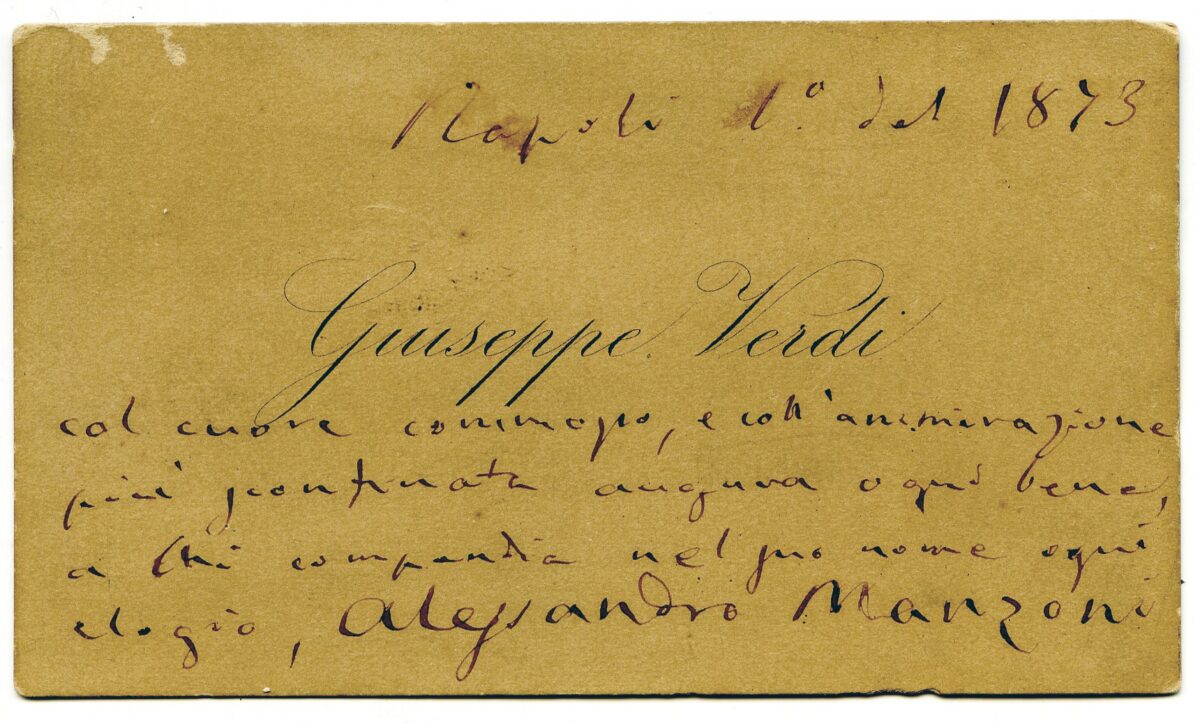 Napoli 1.º del 1873
Giuseppe Verdi
col cuore commosso, e coll'ammirazione
più sconfinata augura ogni bene,
a Chi compendia nel suo nome ogni
elogio, Alessandro Manzoni